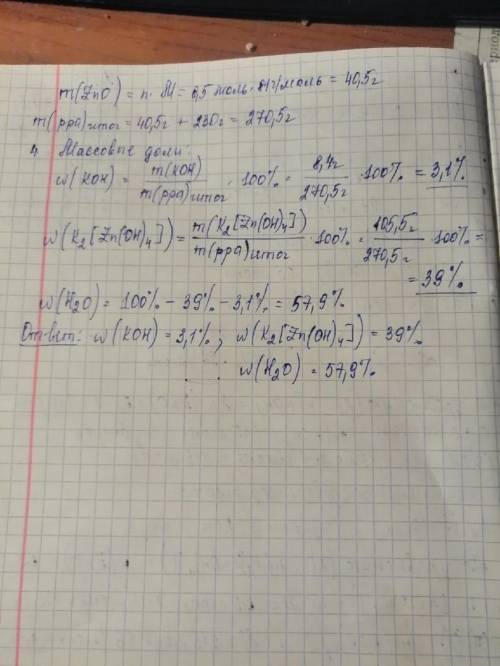 m(ZnO) = n · M = 0,5 моль · 81 г/моль = 40,5 г
m(р-ра)итог = 40,5 г + 230 г = 270,5 г
4. Массовые доли:
w(KOH) = m(KOH) / m(р-ра)итог · 100% = 8,4 г / 270,5 г · 100% = 3,1%
w(K₂[Zn(OH)₄]) = m(K₂[Zn(OH)₄]) / m(р-ра)итог · 100% = 105,5 г / 270,5 г · 100% =
= 39%
w(H₂O) = 100% - 39% - 3,1% = 57,9%
Ответ: w(KOH) = 3,1%; w(K₂[Zn(OH)₄]) = 39%
w(H₂O) = 57,9%